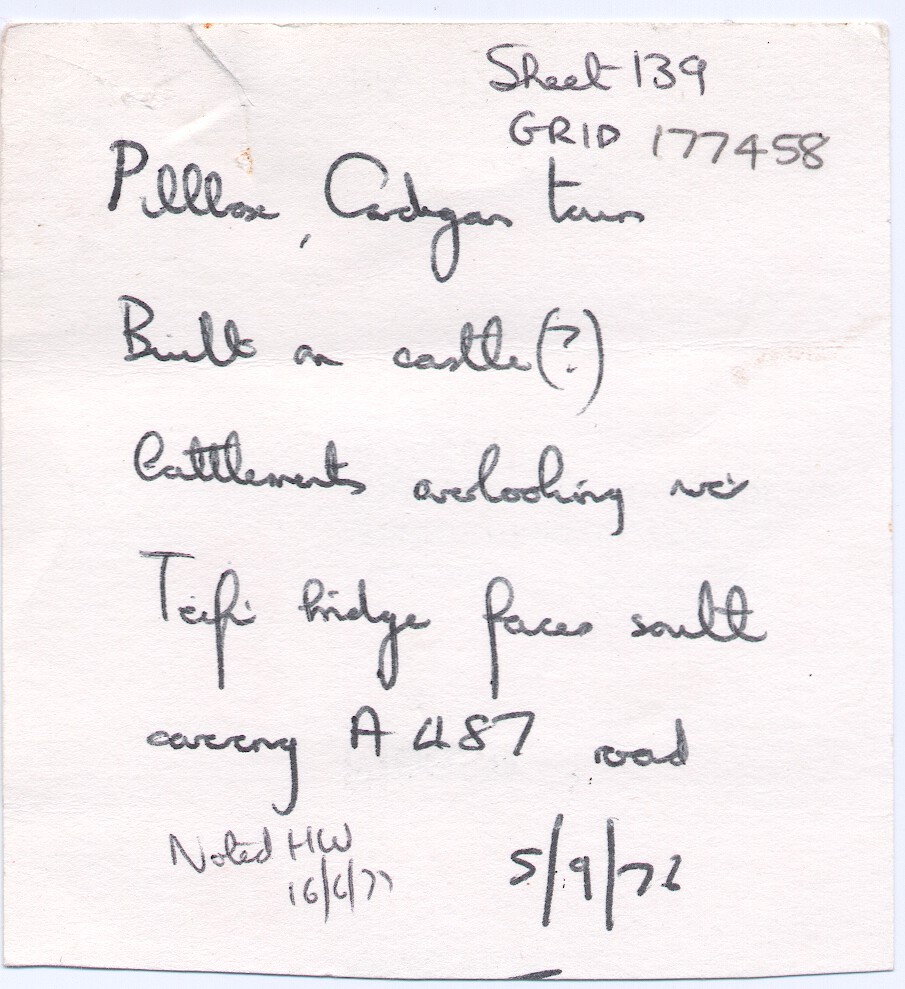 Sheet 139
GRID 177458
Pillbox, Cardigan town
Built on castle (?)
battlements overlooking river
Teifi bridge faces south
carrying A487 road
Noted HW
16/6/77
5/9/76